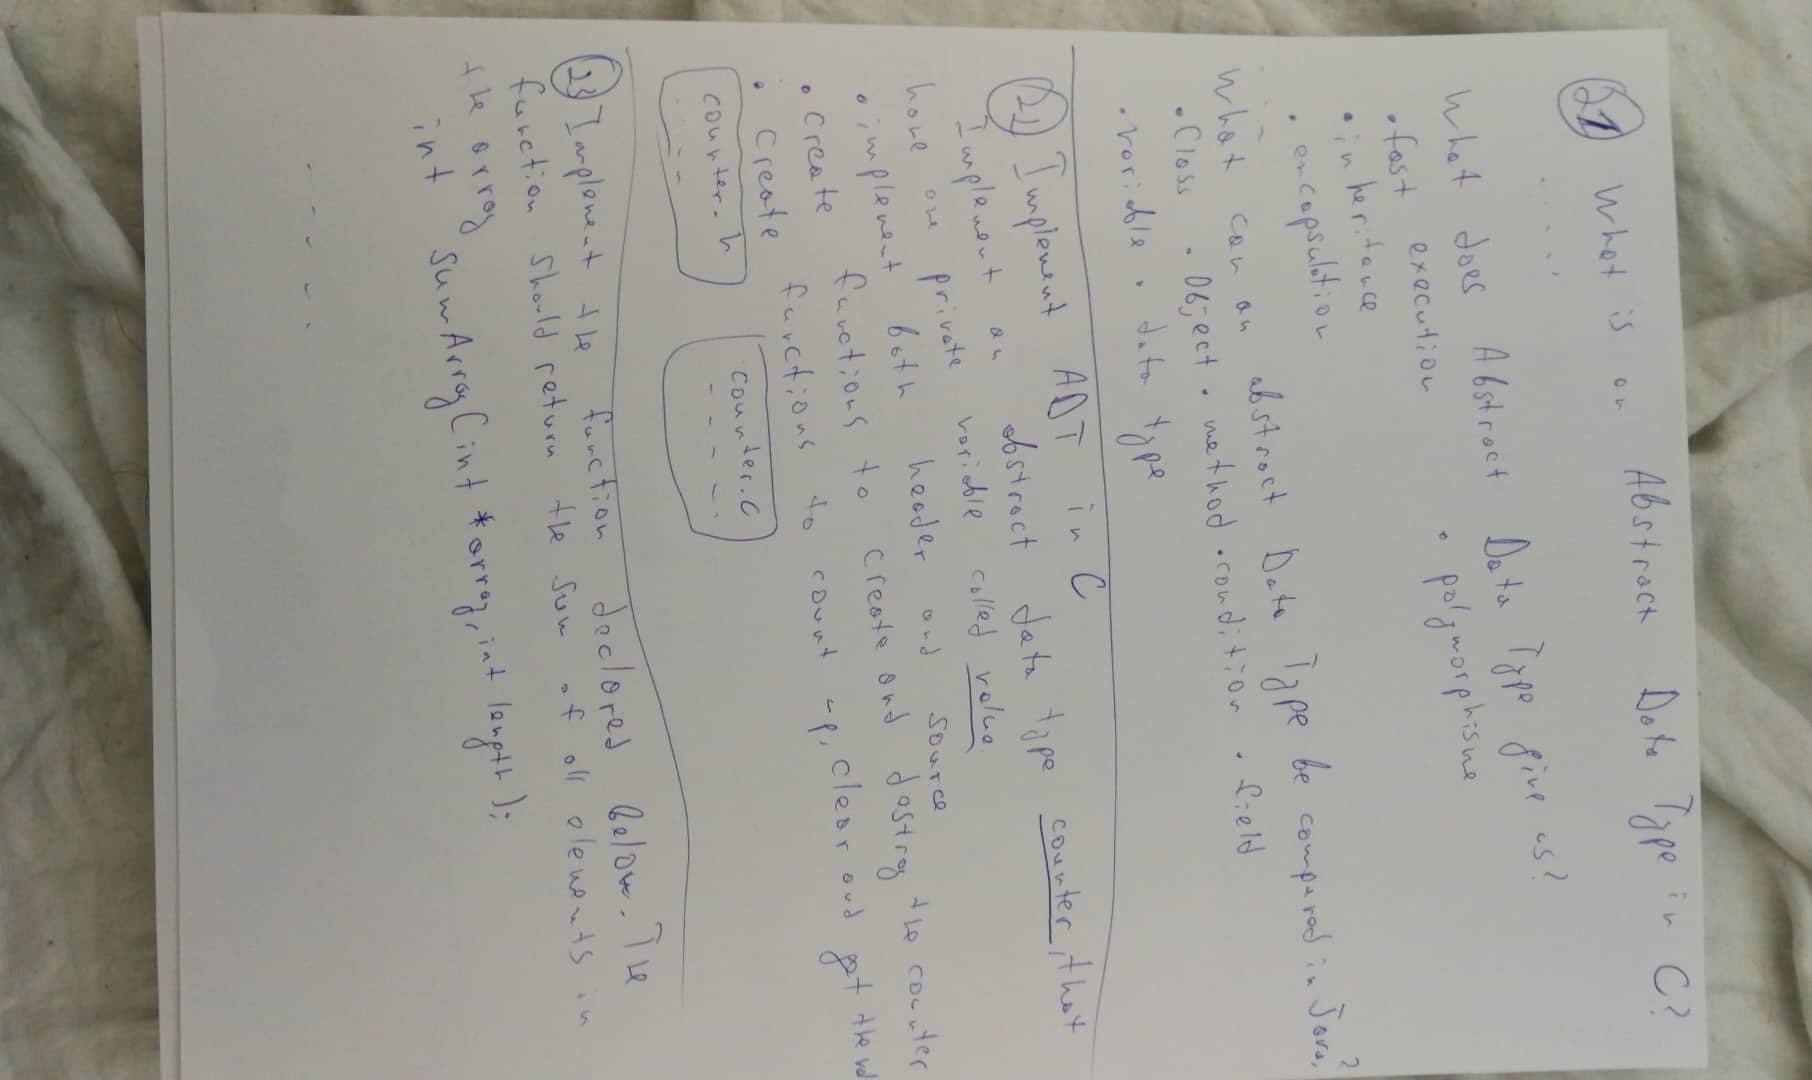 21 What is an Abstract Data Type in C?
.....
What does Abstract Data Type give us?
• fast execution • polymorphisme
• inheritance
• encapsulation
.....
What can an abstract Data Type be compared in Java?
• Class • Object • method • condition • field
• variable • data type
22 Implement ADT in C
Implement an abstract data type counter, that
have one private variable called value
• implement both header and source
• Create functions to create and destroy the counter
• Create functions to count up, clear and get the val
counter.h counter.c
..... - - - - -
23 Implement the function declared below. The
function should return the sum of all elements in
the array
int sumArray(int *array, int length);
- - - - -